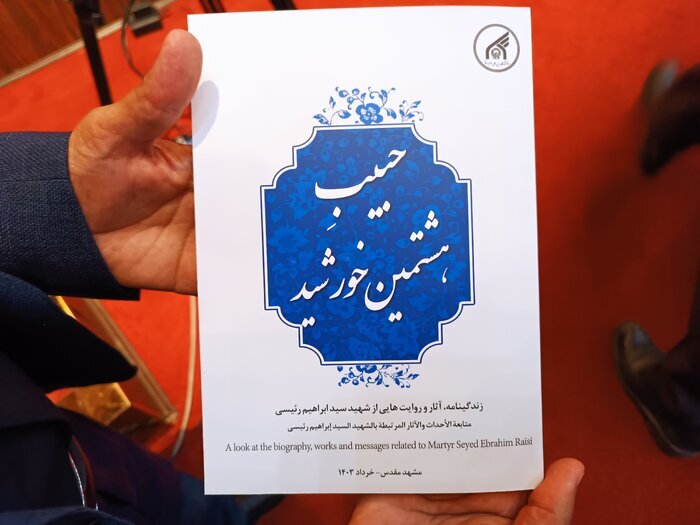 حبیبِ
هشتمین خورشید
زندگینامه، آثار و روایت هایی از شهید سید ابراهیم رئیسی
متابعة الأحداث والآثار المرتبطة بالشهید السید إبراهیم رئیسی
A look at the biography, works and messages related to Martyr Seyed Ebrahim Raisi
مشهد مقدس - خرداد ۱۴۰۳